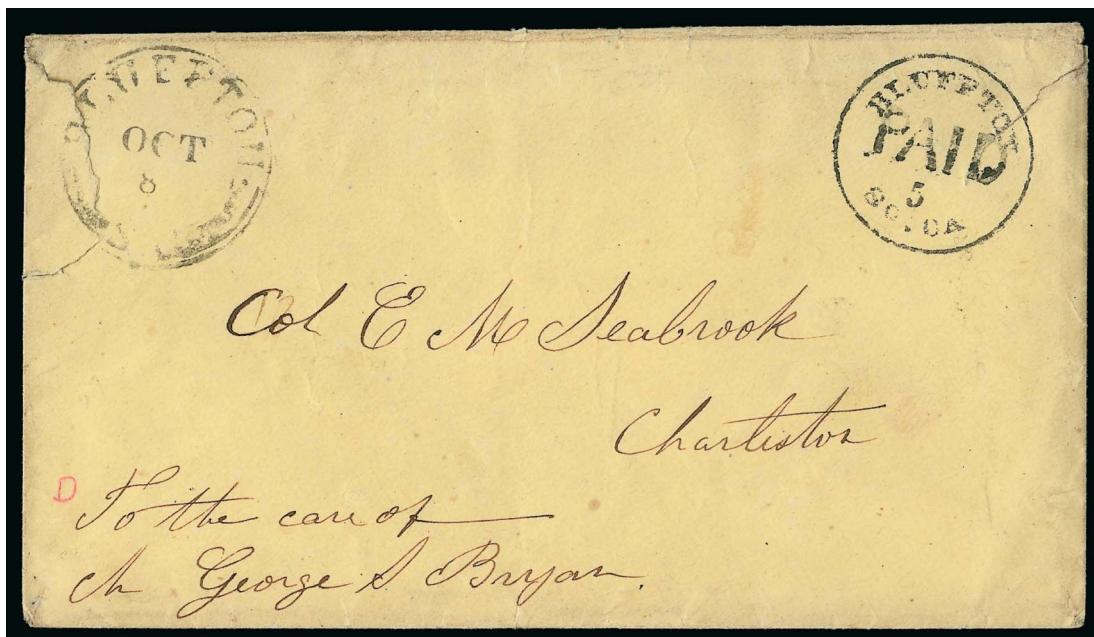 BLUFFTON
OCT
8
BLUFFTON
PAID
5
SO. CA.
Col E M Seabrook
Charleston
D
To the care of
M George S Bryan.